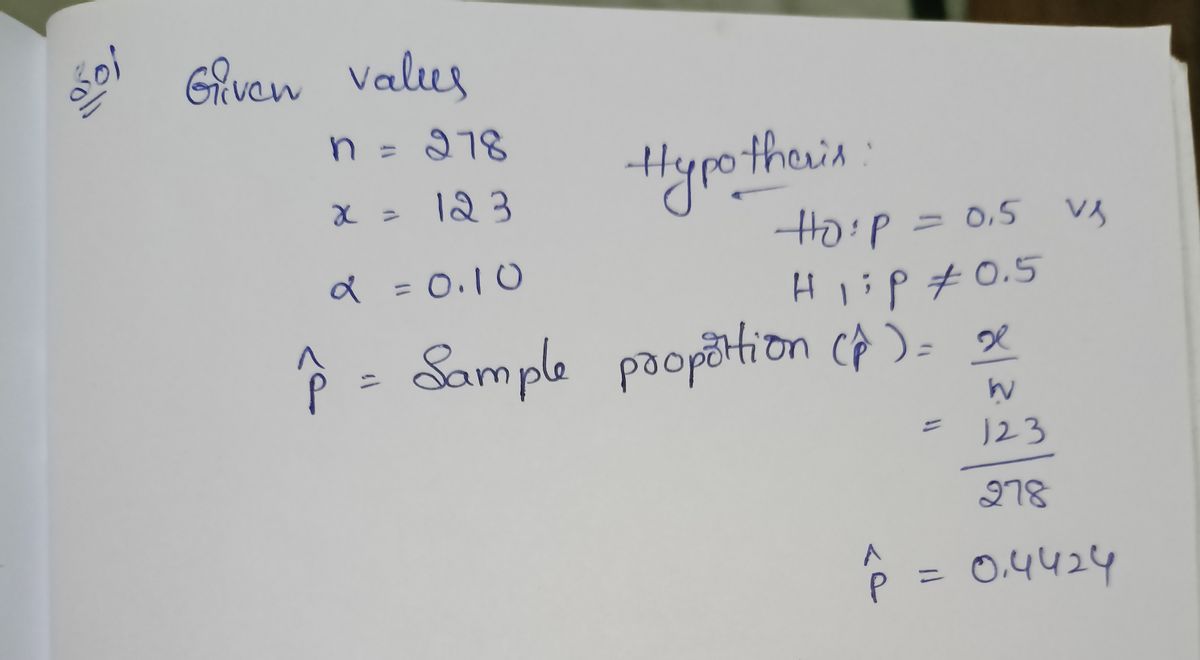 Sol Given values
n = 278
x = 123
α = 0.10
Hypothesis:
H0: p = 0.5 vs
H1: p ≠ 0.5
p̂ = Sample proportion (p̂) = x/n
= 123/278
p̂ = 0.4424